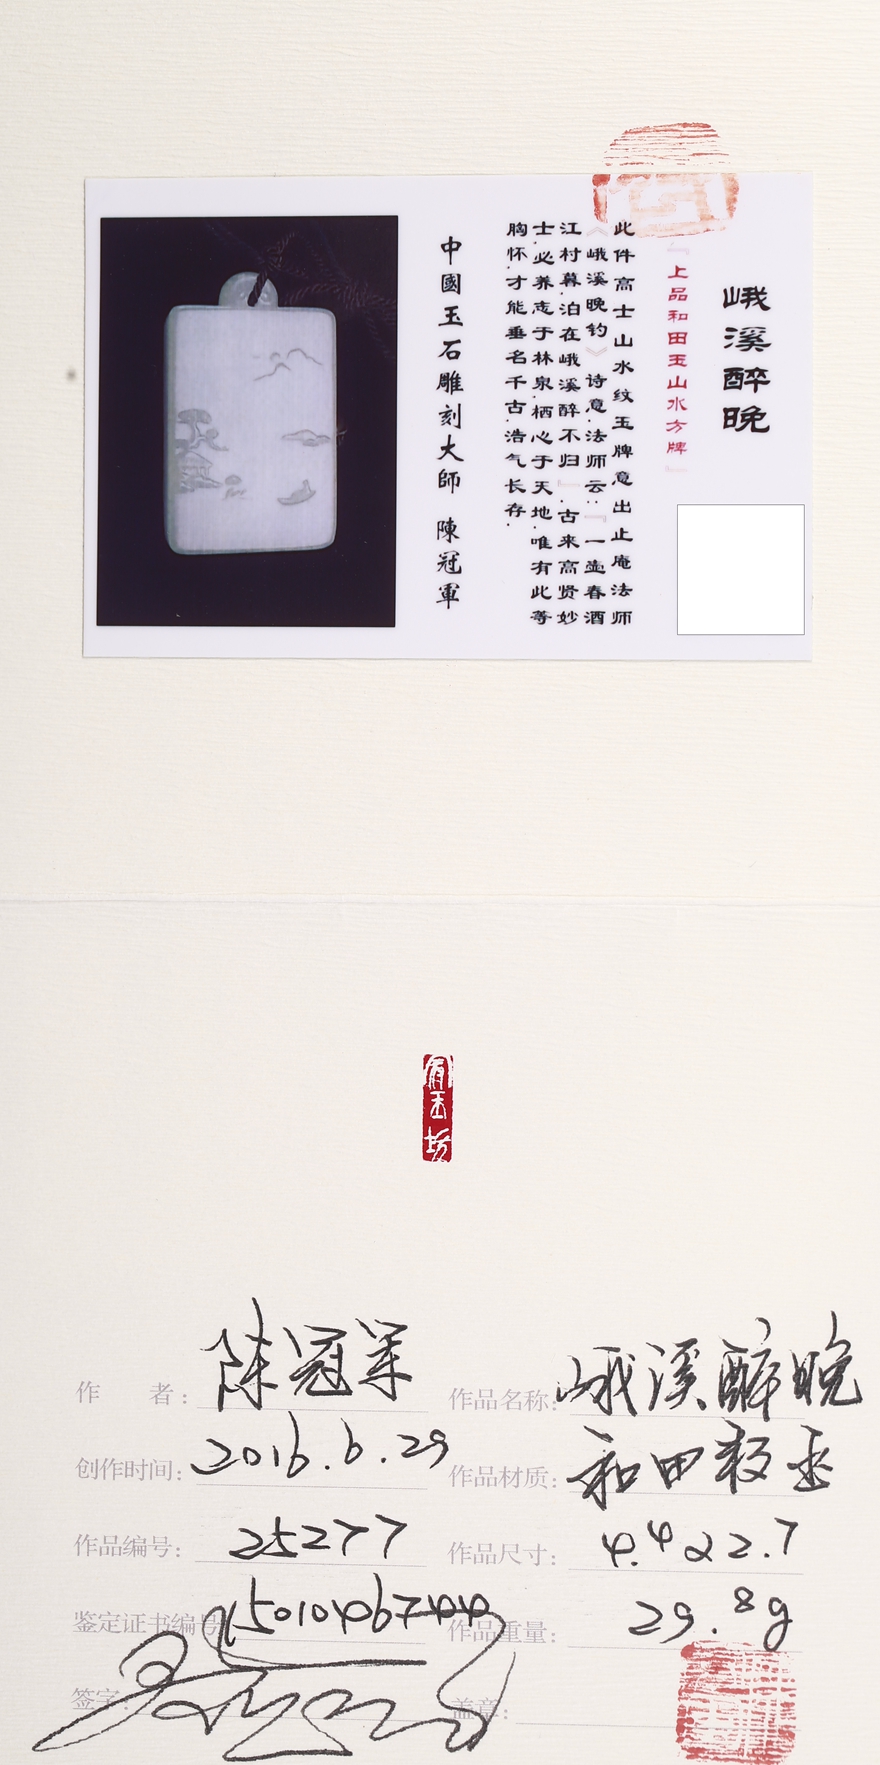 峨溪醉晚
『上品和田玉山水方牌』
此件高士山水纹玉牌意出止庵法师
《峨溪晚钓》诗意.法师云:『一壶春酒
江村暮.泊在峨溪醉不归』.古来高贤妙
士.必养志于林泉.栖心于天地.唯有此等
胸怀.才能垂名千古.浩气长存.
中國玉石雕刻大師 陳冠軍
作者：陈冠军
作品名称：峨溪醉晚
创作时间：2016.6.29
作品材质：和田籽玉
作品编号：25277
作品尺寸：4.4×2.7
鉴定证书编号
作品重量：29.8g
签字：
盖章：